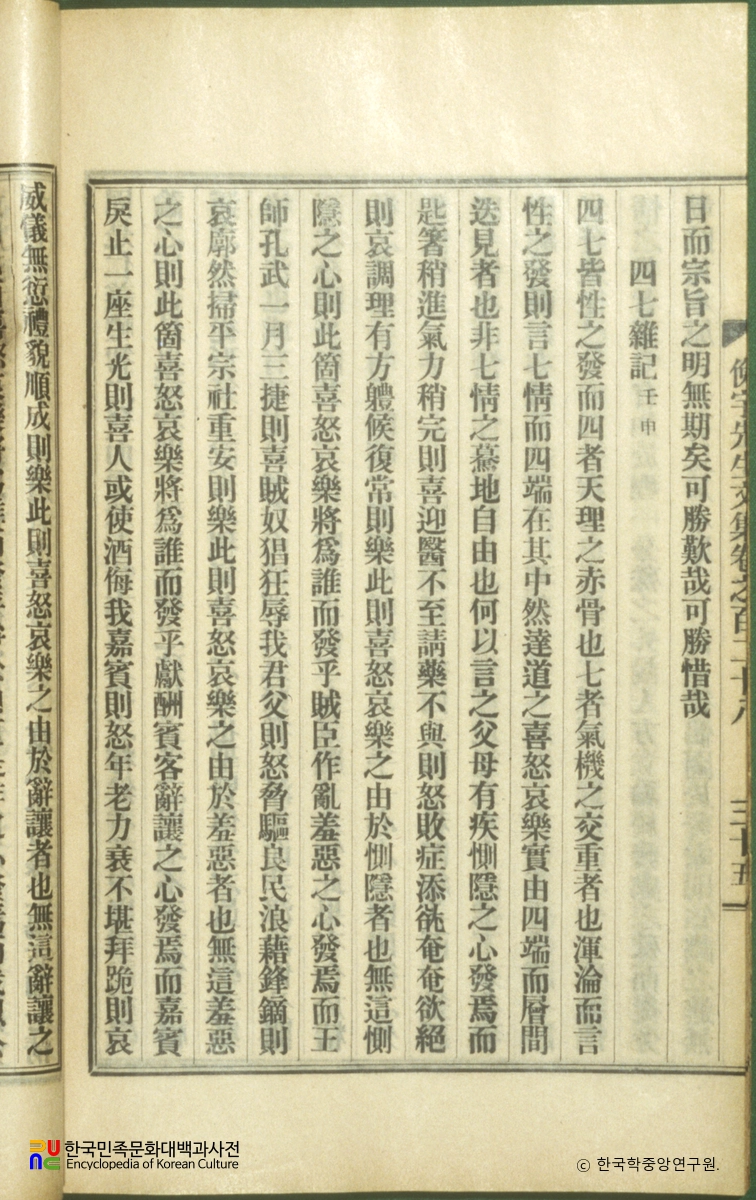 俛宇先生文集卷之百二十八 三十五
日而宗旨之明無期矣可勝歎哉可勝惜哉
四七雜記 壬申
四七皆性之發而四者天理之赤骨也七者氣機之交重者也渾淪而言
性之發則言七情而四端在其中然達道之喜怒哀樂實由四端而層間
迭見者也非七情之驀地自由也何以言之父母有疾惻隱之心發焉而
匙箸稍進氣力稍完則喜迎醫不至請藥不與則怒敗症添谻奄奄欲絕
則哀調理有方軆候復常則樂此則喜怒哀樂之由於惻隱者也無這惻
隱之心則此箇喜怒哀樂將爲誰而發乎賊臣作亂羞惡之心發焉而王
師孔武一月三捷則喜賊奴猖狂辱我君父則怒脅驅良民浪藉鋒鏑則
哀廓然掃平宗社重安則樂此則喜怒哀樂之由於羞惡者也無這羞惡
之心則此箇喜怒哀樂將爲誰而發乎獻酬賓客辭讓之心發焉而嘉賓
戾止一座生光則喜人或使酒侮我嘉賓則怒年老力衰不堪拜跪則哀
威儀無愆禮貌順成則樂此則喜怒哀樂之由於辭讓者也無這辭讓之
한국민족문화대백과사전
Encyclopedia of Korean Culture
ⓒ 한국학중앙연구원.